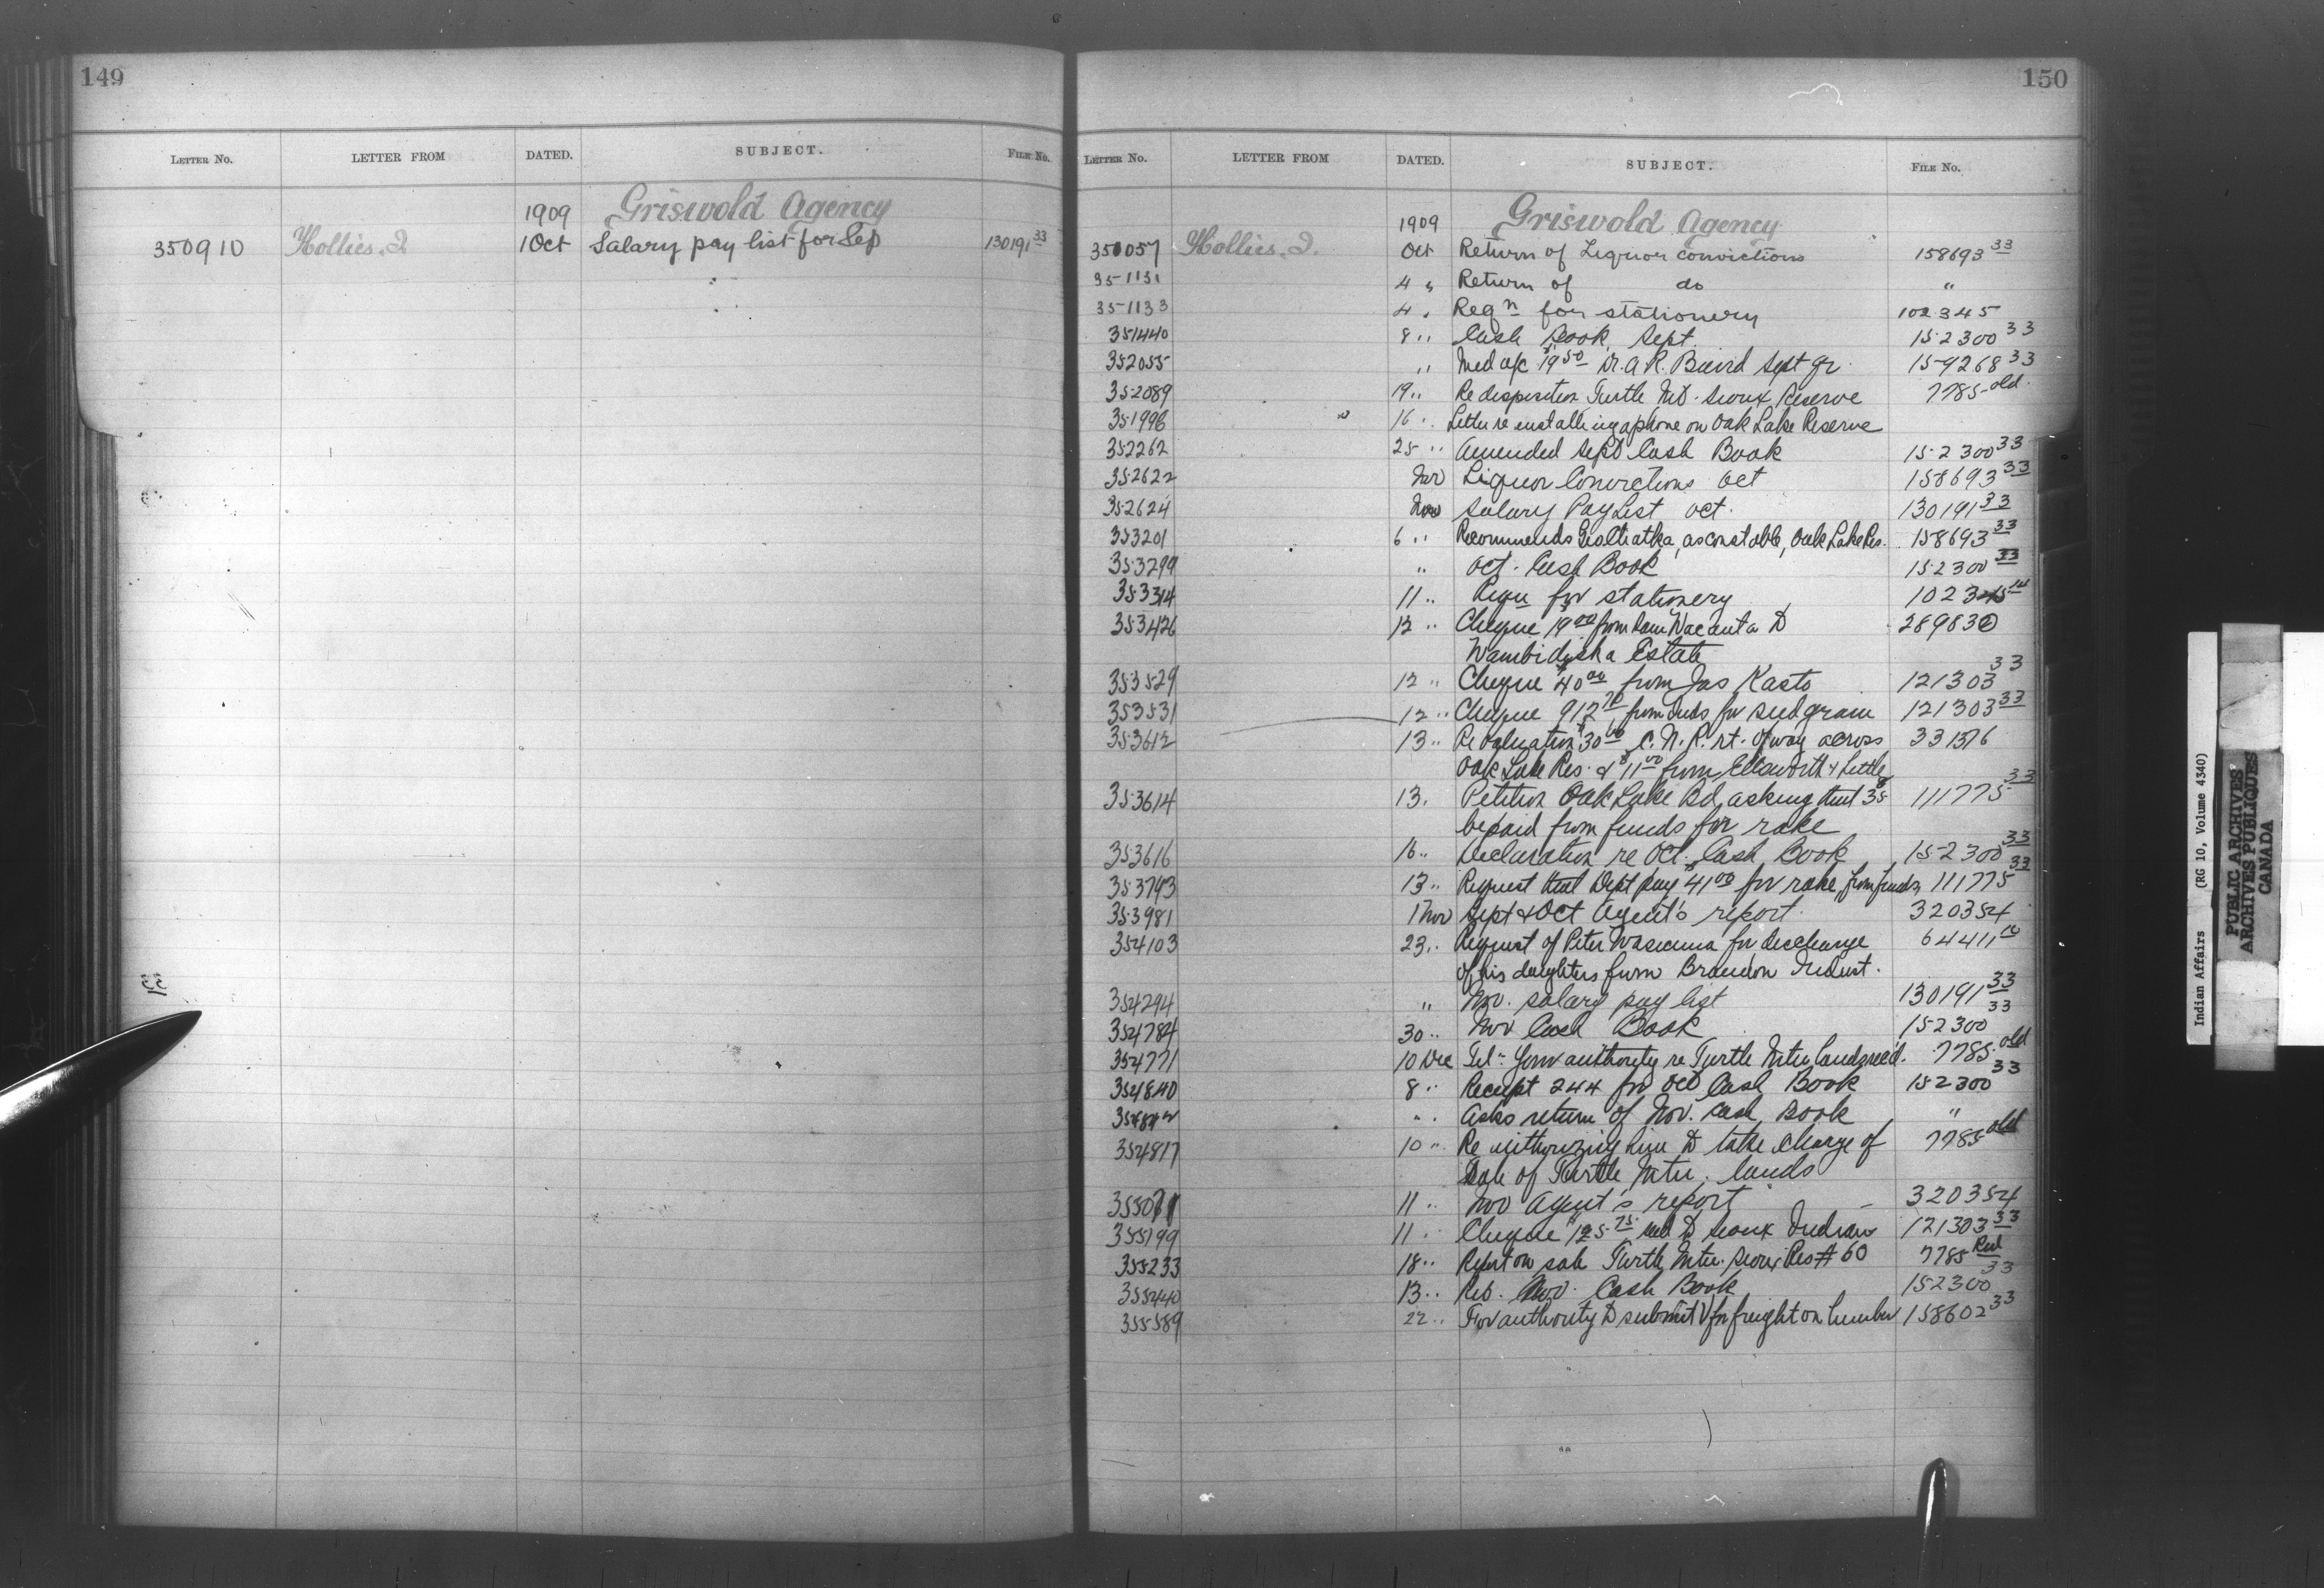 149
LETTER NO. LETTER FROM DATED. SUBJECT. FILE NO.
1909 Griswold Agency
350910 Hollies, J 1 Oct Salary pay list for Sep 130191 33
150
LETTER NO. LETTER FROM DATED. SUBJECT. FILE NO.
1909 Griswold Agency
351057 Hollies, J. Oct Return of Liquor convictions 158693 33
351131 4 " Return of do "
351133 4 " Reqn for stationery 102345
351440 8 " Cash Book Sept. 152300 33
352055 " Med a/c $19 50 Dr. A R. Baird Sept qr. 159268 33
352089 19 " Re disposition Turtle Mt. Sioux Reserve 7785 old
351996 16 " Letter re installing a phone on Oak Lake Reserve
352262 25 " Amended Sept Cash Book 152300 33
352622 Nov Liquor Convictions Oct 158693 33
352624 Nov Salary Pay List Oct. 130191 33
353201 6 " Recommends as constable, Oak Lake Res. 158693 33
353299 " Oct. Cash Book 152300 33
353314 11 " Reqn for stationery 102345
353426 12 " Cheque 19 00 from Wacanta to 289830
Estate
353529 12 " Cheque $40 00 from Jas Kasto 121303 33
353531 12 " Cheque 912 from Inds for seed grain 121303 33
353612 13 " Re valuation $30 00 C. N. R. rt. of way across 331376
Oak Lake Res. & $11 00 from Ellsworth & Little
353614 13 " Petition Oak Lake Bd, asking that $38 111775 33
be paid from funds for rake
353616 16 " Declaration re Oct. Cash Book 152300 33
353793 13 " Request that Dept pay $41 00 for rake from funds 111775 33
353981 1 Nov Sept & Oct Agent's report. 320354
354103 23 " Request of Peter Wasicuna for discharge 64411
of his daughters from Brandon Indust.
354294 " Nov. salary pay list 130191 33
354784 30 " Nov Cash Book 152300 33
354771 10 Dec Tel - Your authority re Turtle Mtn lands rec'd. 7785 old
354840 8 " Receipt 244 for Oct Cash Book 152300 33
354842 " Asks return of Nov. Cash Book "
354817 10 " Re authorizing him to take charge of 7785 old
Sale of Turtle Mtn. lands
355071 11 " Nov Agent's report 320354
355199 11 " Cheque $125.75 to Sioux Indians 121303 33
355233 18 " Report on sale Turtle Mtn. Sioux Res # 60 7785 Red
355440 13 " Ret. Nov. Cash Book 152300 33
355589 22 " For authority to submit V for freight on lumber 158602 33
Indian Affairs (RG 10, Volume 4340)
PUBLIC ARCHIVES
ARCHIVES PUBLIQUES
CANADA